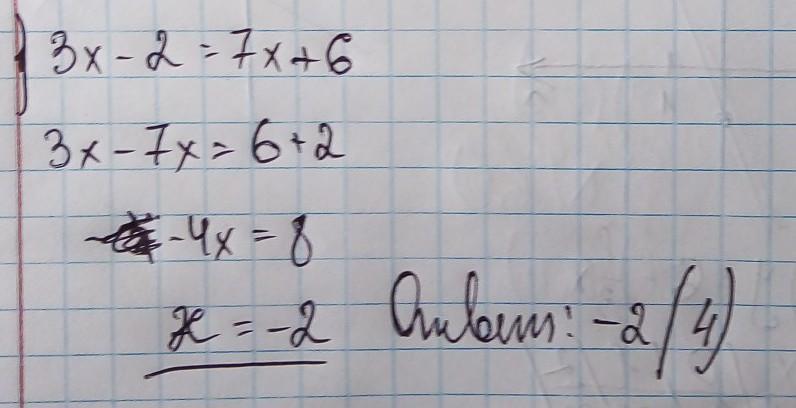 ) 3x - 2 = 7x + 6
3x - 7x = 6 + 2
-4x = 8
x = -2 Ответ: -2 (4)